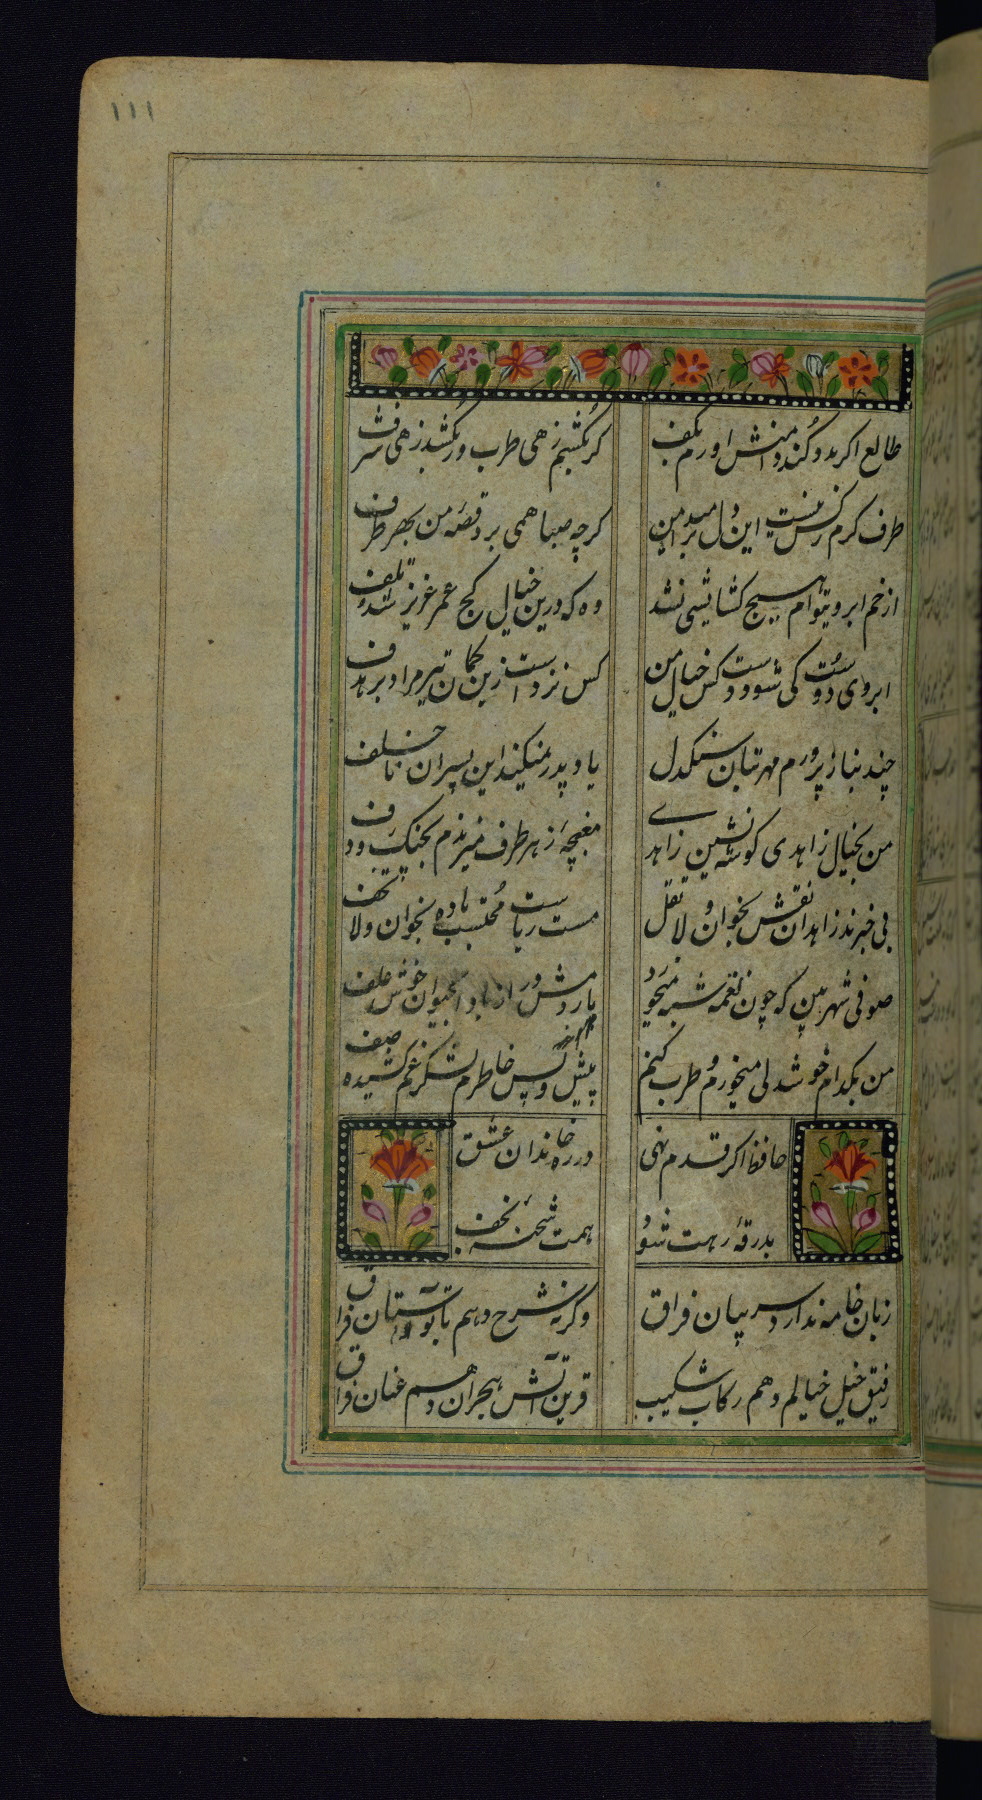 ۱۱۱
طالع اکر مدد کند دامنش اورم بکف
کر بکشم زهی طرب ور بکشد زهی شرف
طرف کرم ز کس نبست این دل پر امید من
کرچه صبا همی برد قصهٔ من بهر طرف
از خم ابروی توام هیچ کشایشی نشد
وه که درین خیال کج عمر عزیز شد تلف
ابروی دوست کی شود دست کش خیال من
کس نزدست ازین کمان تیر مراد بر هدف
چند بناز پرورم مهر بتان سنکدل
یاد پدر نمیکنند این پسران ناخلف
من بخیال زاهدی کوشه نشین
مغبچهٔ ز هر طرف میزندم بچنک و دف
بی خبرند زاهدان نقش بخوان و لا تقل
مست ریاست محتسب باده بخوان ولا تخف
صوفی شهر بین که چون لقمهٔ شبهه میخورد
پاردمش دراز باد این حیوان خوش علف
من بکدام خوشدلی میخورم و طرب کنم
پیش و پس خاطرم لشکر غم کشیده صف
حافظ اکر قدم نهی
در ره خاندان عشق
بدرقهٔ رهت شود
همت شحنهٔ نجف
زبان خامه ندارد سر بیان فراق
وکرنه شرح دهم با تو داستان فراق
رفیق خیل خیالم و هم رکاب شکیب
قرین آتش هجران و هم عنان فراق